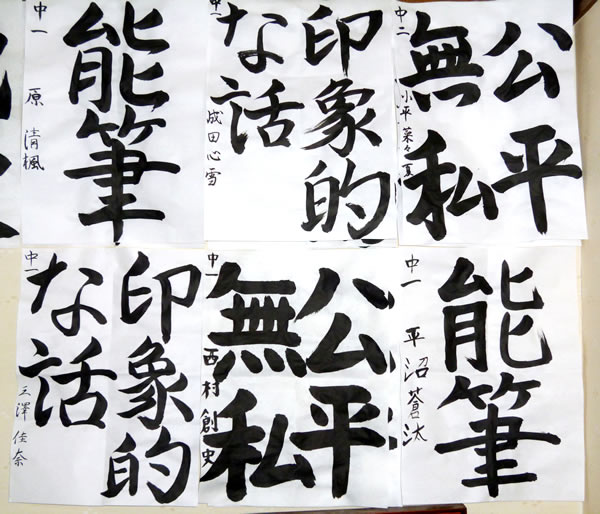 能筆
中一 原 清楓
印象的
な話
成田心雪
公平
無私
中二 小平 菜々夏
印象的
な話
中一 三澤 佳奈
公平
無私
中一 西村創史
能筆
中一 平沼蒼汰